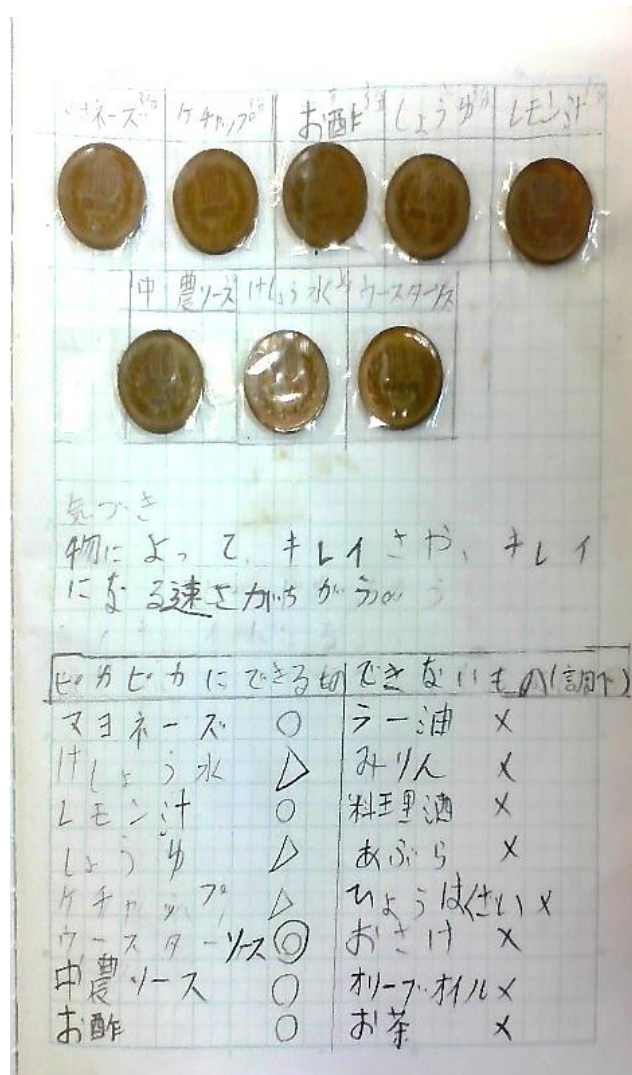 マヨネーズ ケチャップ お酢 しょうゆ レモン汁
中農ソース けしょう水 ウースターソース
気づき
物によって、キレイさや、キレイ
になる速さがちがう
ピカピカにできるもの できないもの(調下)
マヨネーズ ○ ラー油 ×
けしょう水 △ みりん ×
レモン汁 ○ 料理酒 ×
しょうゆ △ あぶら ×
ケチャップ △ ひょうはくざい ×
ウースターソース ◎ おさけ ×
中農ソース ○ オリーブオイル ×
お酢 ○ お茶 ×